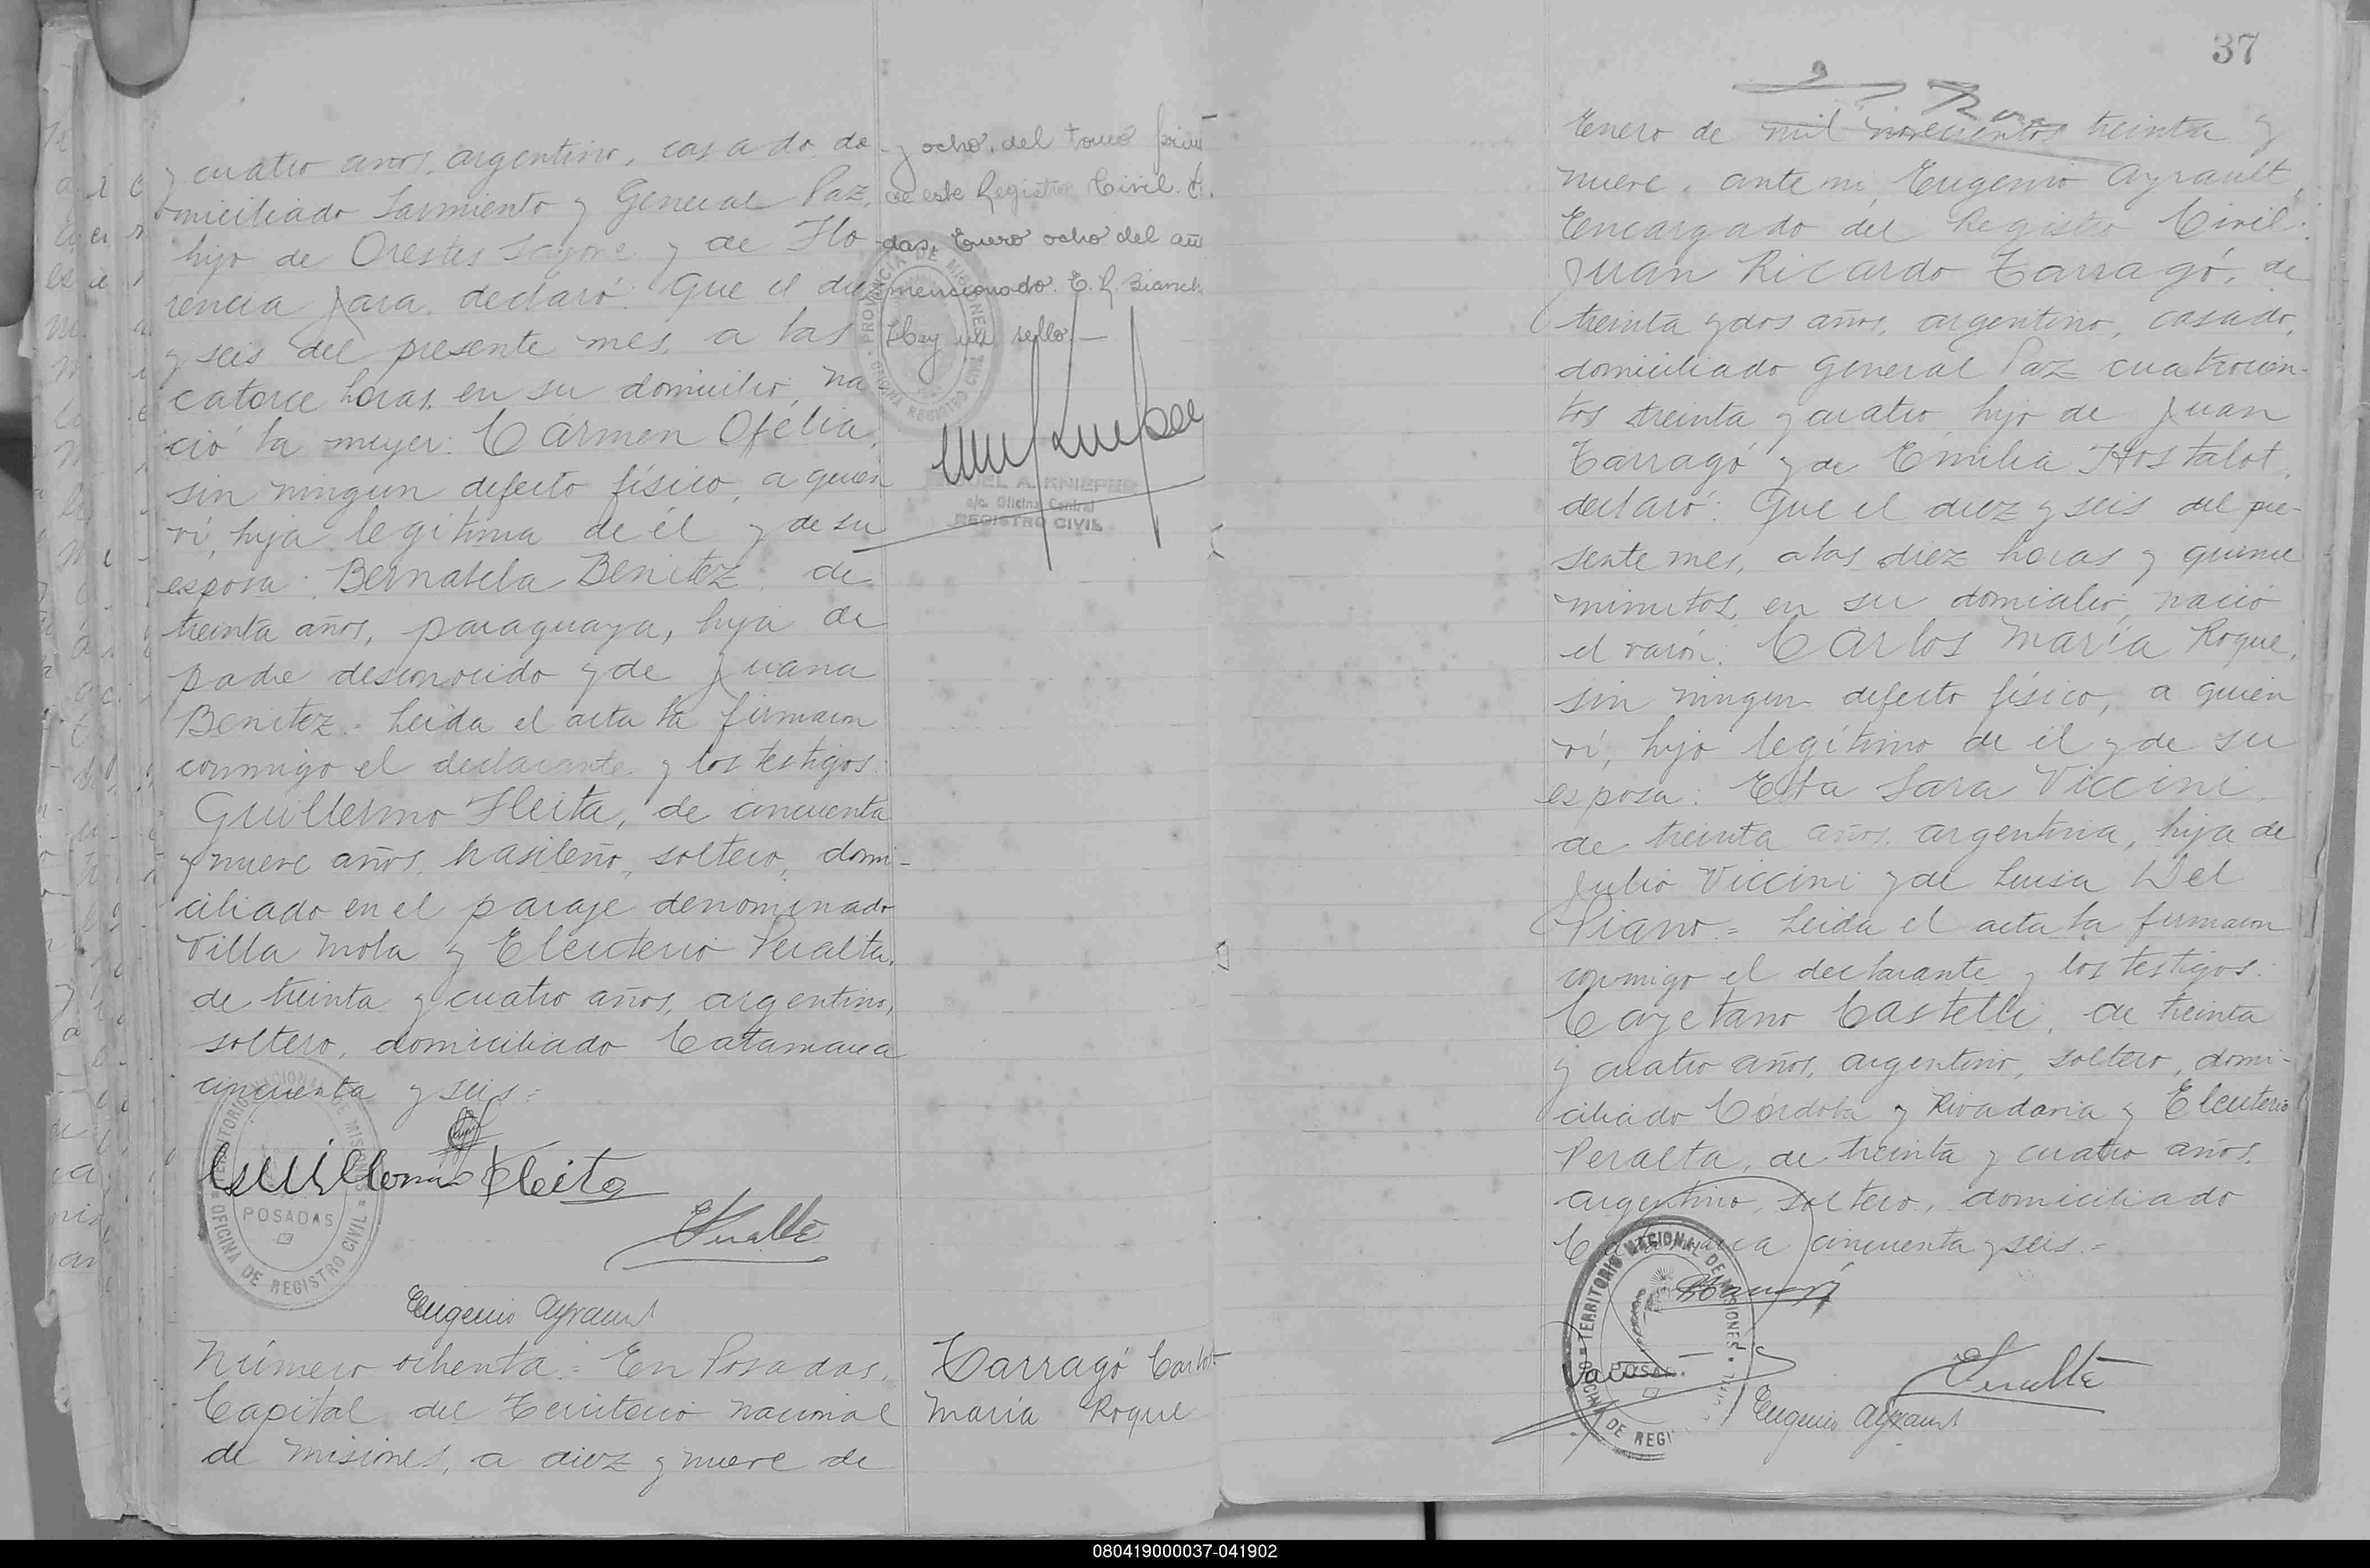 y cuatro años, argentino, casado do
miciliado Sarmiento y General Paz,
hijo de Orestes y de Flo
rencia Jara, declaró: Que el diez
y seis del presente mes, a las
catorce horas, en su domicilio, na
ció la mujer: Cármen Ofélia,
sin ningun defecto físico, a quien
ví, hija legítima de él y de su
esposa: Bernabela Benitez, de
treinta años, paraguaya, hija de
padre desconocido y de Juana
Benitez.- Leida el acta la firmaron
conmigo el declarante y los testigos:
Guillermo Fleita, de cincuenta
y nueve años, brasileño, soltero, domi-
ciliado en el paraje denominado
Villa Mola y Eleuterio Peralta,
de treinta y cuatro años, argentino,
soltero, domiciliado Catamarca
cincuenta y seis=
Guillermo Fleita
EPeralta
Eugenio Ayrault
TERRITORIO NACIONAL DE MISIONES
POSADAS
OFICINA DE REGISTRO CIVIL
Número ochenta.= En Posadas,
Capital del Territorio nacional
de Misiones, a diez y nueve de
y ocho, del tomo
de este Registro Civil.
das, Enero ocho del año
mencionado. E. R.
Hay un sello.-
PROVINCIA DE MISIONES
OFICINA REGISTRO CIVIL
A. KNIEPER
a/c. Oficina Central
REGISTRO CIVIL
Tarragó Carlos
María Roque
37
Enero de mil novecientos treinta y
nueve, ante mi, Eugenio Ayrault,
Encargado del Registro Civil:
Juan Ricardo Tarragó, de
treinta y dos años, argentino, casado,
domiciliado General Paz cuatrocien-
tos treinta y cuatro, hijo de Juan
Tarragó y de Emilia Hostalot,
declaró: Que el diez y seis del pre-
sente mes, a las diez horas y quince
minutos, en su domicilio, nació
el varón: Carlos María Roque,
sin ningun defecto físico, a quien
ví, hijo legítimo de él y de su
esposa: Sara Viccini,
de treinta años, argentina, hija de
Julio Viccini y de Luisa Del
Piano.= Leida el acta la firmaron
conmigo el declarante y los testigos:
Cayetano Castelli, de treinta
y cuatro años, argentino, soltero, domi-
ciliado Córdoba y Rivadavia y Eleuterio
Peralta, de treinta y cuatro años,
argentino, soltero, domiciliado
Catamarca cincuenta y seis.=
TERRITORIO NACIONAL DE MISIONES
EPeralta
Eugenio Ayrault
080419000037-041902